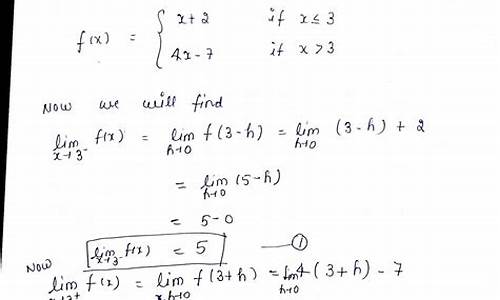 f(x) = { x+2 if x ≤ 3
4x-7 if x > 3
Now we will find
lim x→3⁻ f(x) = lim h→0 f(3-h) = lim h→0 (3-h) + 2
= lim h→0 (5-h)
= 5-0
lim x→3⁻ f(x) = 5 — ①
Now
lim x→3⁺ f(x) = lim h→0 f(3+h) = lim h→0 4(3+h) - 7